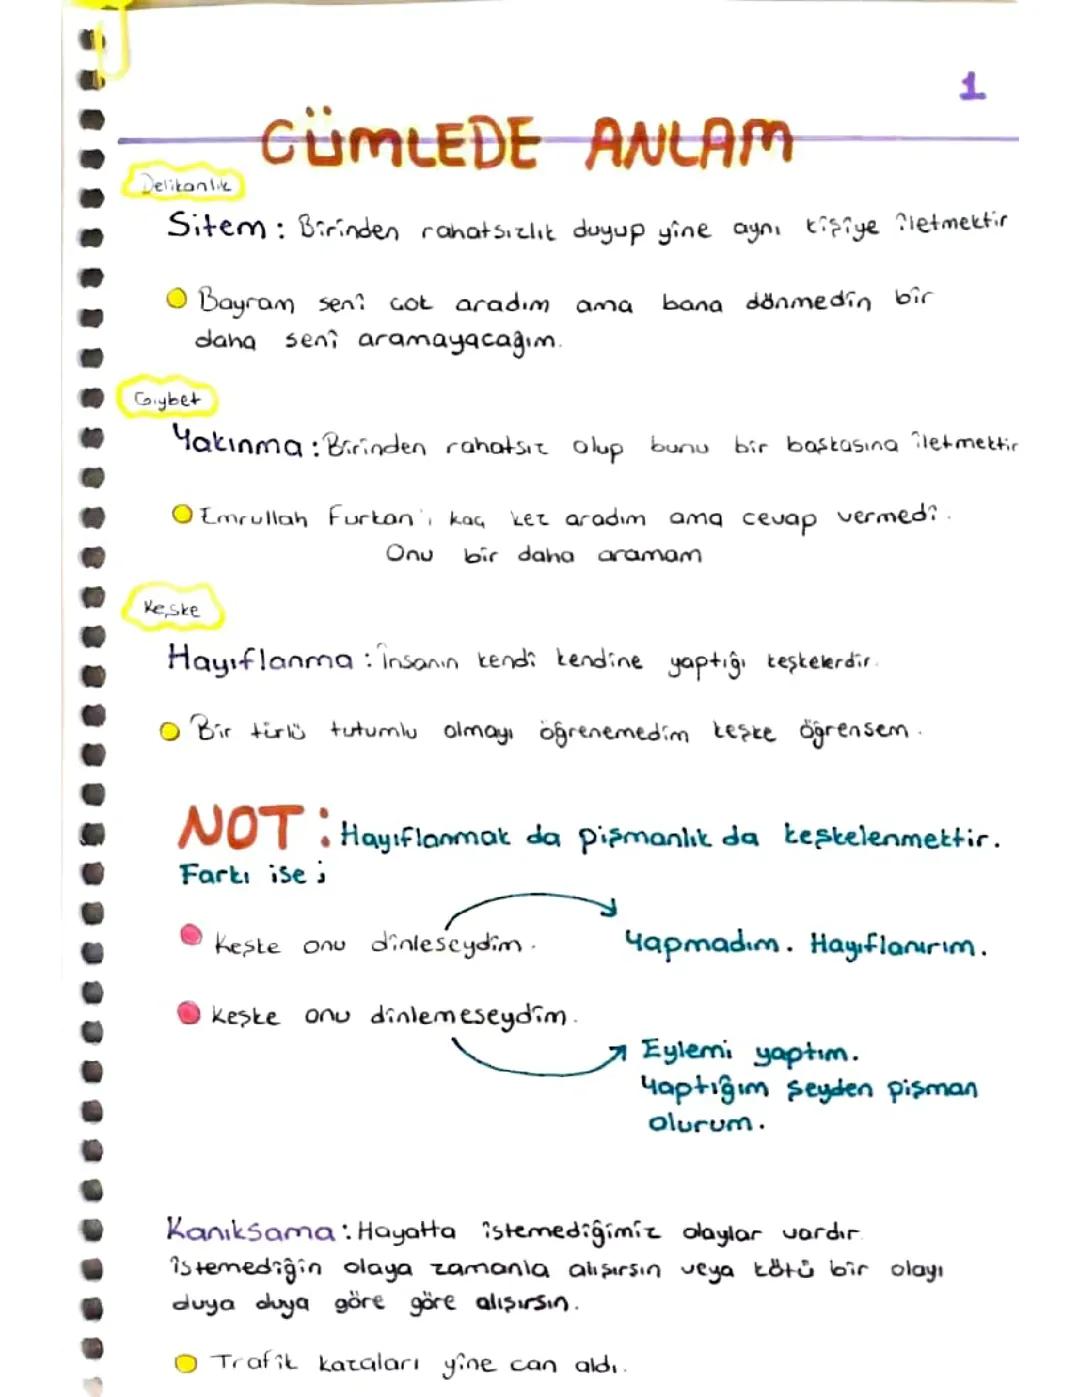 1
CÜMLEDE ANLAM
Delikanlık
Sitem : Birinden rahatsızlık duyup yine aynı kişiye iletmektir
Bayram seni çok aradım ama bana dönmedin bir
daha seni aramayacağım.
Gıybet
Yakınma : Birinden rahatsız olup bunu bir başkasına iletmektir
Emrullah Furkan'ı kaç kez aradım ama cevap vermedi.
Onu bir daha aramam
Keşke
Hayıflanma : İnsanın kendi kendine yaptığı keşkelerdir.
Bir türlü tutumlu olmayı öğrenemedim keşke öğrensem.
NOT : Hayıflanmak da pişmanlık da keşkelenmektir.
Farkı ise ;
Keşke onu dinleseydim. Yapmadım. Hayıflanırım.
Keşke onu dinlemeseydim.
Eylemi yaptım.
Yaptığım şeyden pişman
olurum.
Kanıksama : Hayatta istemediğimiz olaylar vardır.
İstemediğin olaya zamanla alışırsın veya kötü bir olayı
duya duya göre göre alışırsın.
Trafik kazaları yine can aldı.